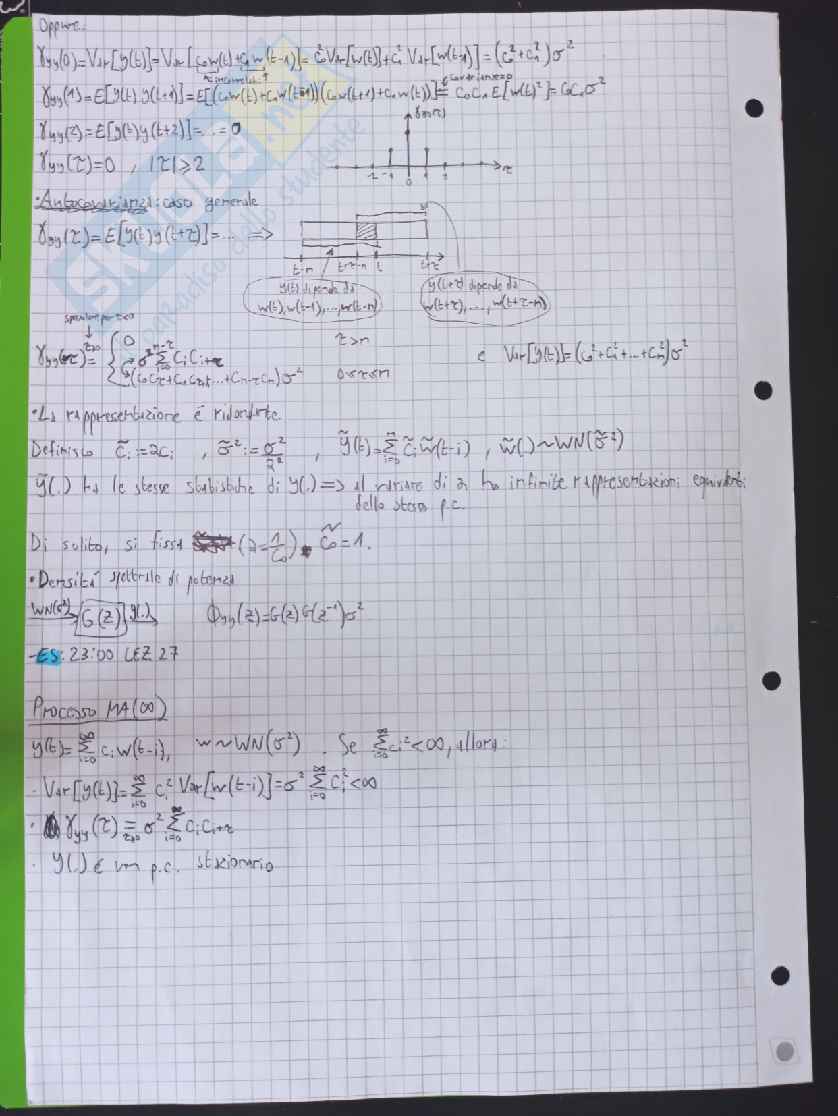 Oppure:
γyy(0)=Var[y(t)]=Var[c₀w(t)+c₁w(t-1)]=c₀²Var[w(t)]+c₁²Var[w(t-1)]=(c₀²+c₁²)σ²
incorrelati
γyy(1)=E[y(t)y(t+1)]=E[(c₀w(t)+c₁w(t-1))(c₀w(t+1)+c₁w(t))]=c₀c₁E[w(t)²]=c₀c₁σ²
γyy(2)=E[y(t)y(t+2)]=...=0
γyy(τ)
γyy(τ)=0 , |τ|≥2
-2 -1 0 1 2 τ
·Autocovarianza: caso generale
γyy(τ)=E[y(t)y(t+τ)]=... =>
t-n t+τ-n t t+τ
y(t) dipende da w(t),w(t-1),...,w(t-n)
y(t+τ) dipende da w(t+τ),...,w(t+τ-n)
γyy(τ) τ≥0 = { 0 τ>n
σ² Σ i=0 n-τ cᵢcᵢ₊τ
(c₀cτ+c₁c₁₊τ+...+cn-τcn)σ² 0≤τ≤n
e Var[y(t)]=(c₀²+c₁²+...+cn²)σ²
·La rappresentazione é ridondante.
Definisco c̃ᵢ:=αcᵢ , σ̃²:=σ²/α² , ỹ(t)=Σ i=0 n c̃ᵢw̃(t-i) , w̃(.)~WN(σ̃²)
ỹ(.) ha le stesse statistiche di y(.) => al variare di α ho infinite rappresentazioni equivalenti
dello stesso p.c.
Di solito, si fissa (α=1/c₀). c̃₀=1.
·Densitá spettrale di potenza
WN(σ²) G(z) y(.) Φyy(z)=G(z)G(z⁻¹)σ²
-ES: 23:00 LEZ 27
PROCESSO MA(∞)
y(t)=Σ i=0 ∞ cᵢw(t-i), w~WN(σ²) . Se Σ i=0 ∞ cᵢ²<∞, allora:
· Var[y(t)]=Σ i=0 ∞ cᵢ²Var[w(t-i)]=σ² Σ i=0 ∞ cᵢ²<∞
· γyy(τ) = τ≥0 σ² Σ i=0 ∞ cᵢcᵢ₊τ
· y(.) é un p.c. stazionario